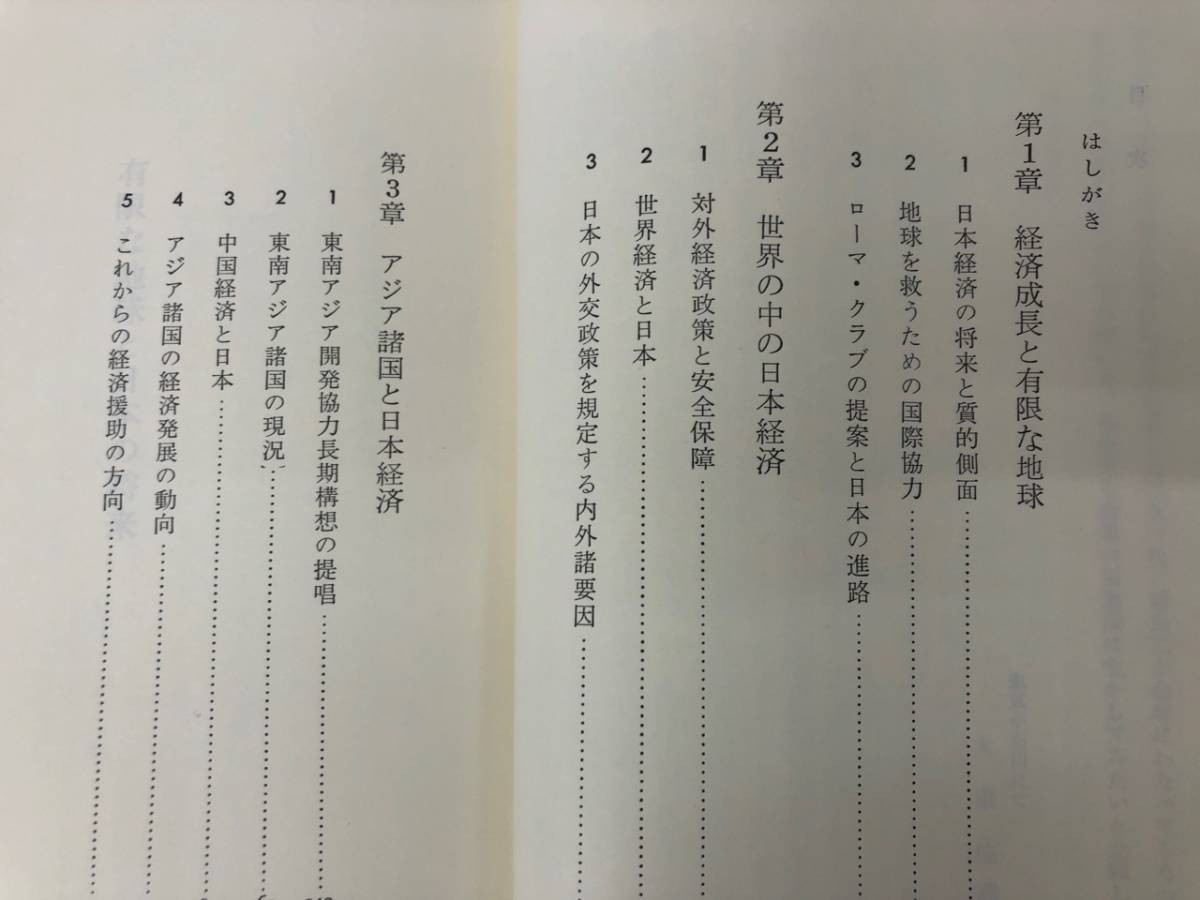 はしがき
第1章 経済成長と有限な地球
1 日本経済の将来と質的側面
2 地球を救うための国際協力
3 ローマ・クラブの提案と日本の進路
第2章 世界の中の日本経済
1 対外経済政策と安全保障
2 世界経済と日本
3 日本の外交政策を規定する内外諸要因
第3章 アジア諸国と日本経済
1 東南アジア開発協力長期構想の提唱
2 東南アジア諸国の現況
3 中国経済と日本
4 アジア諸国の経済発展の動向
5 これからの経済援助の方向